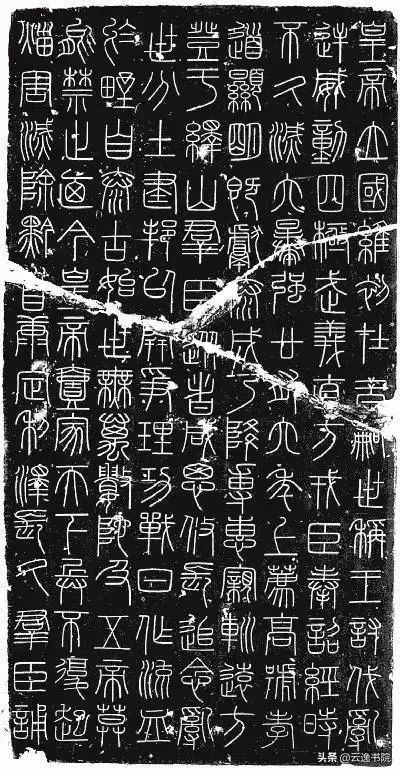 皇帝立國維初在昔嗣世稱王討伐亂
逆威動四極武義直方戎臣奉詔經時
不久滅六暴強廿有六年上薦高號孝
道顯明既獻泰成乃降專惠親巡遠方
登于繹山羣臣從者咸思攸長追念亂
世分土建邦以開爭理功戰日作流血
於野自泰古始世無萬數陀及五帝莫
能禁止迺今皇帝壹家天下兵不復起
災害滅除黔首康定利澤長久羣臣誦
头条 @云逸书院